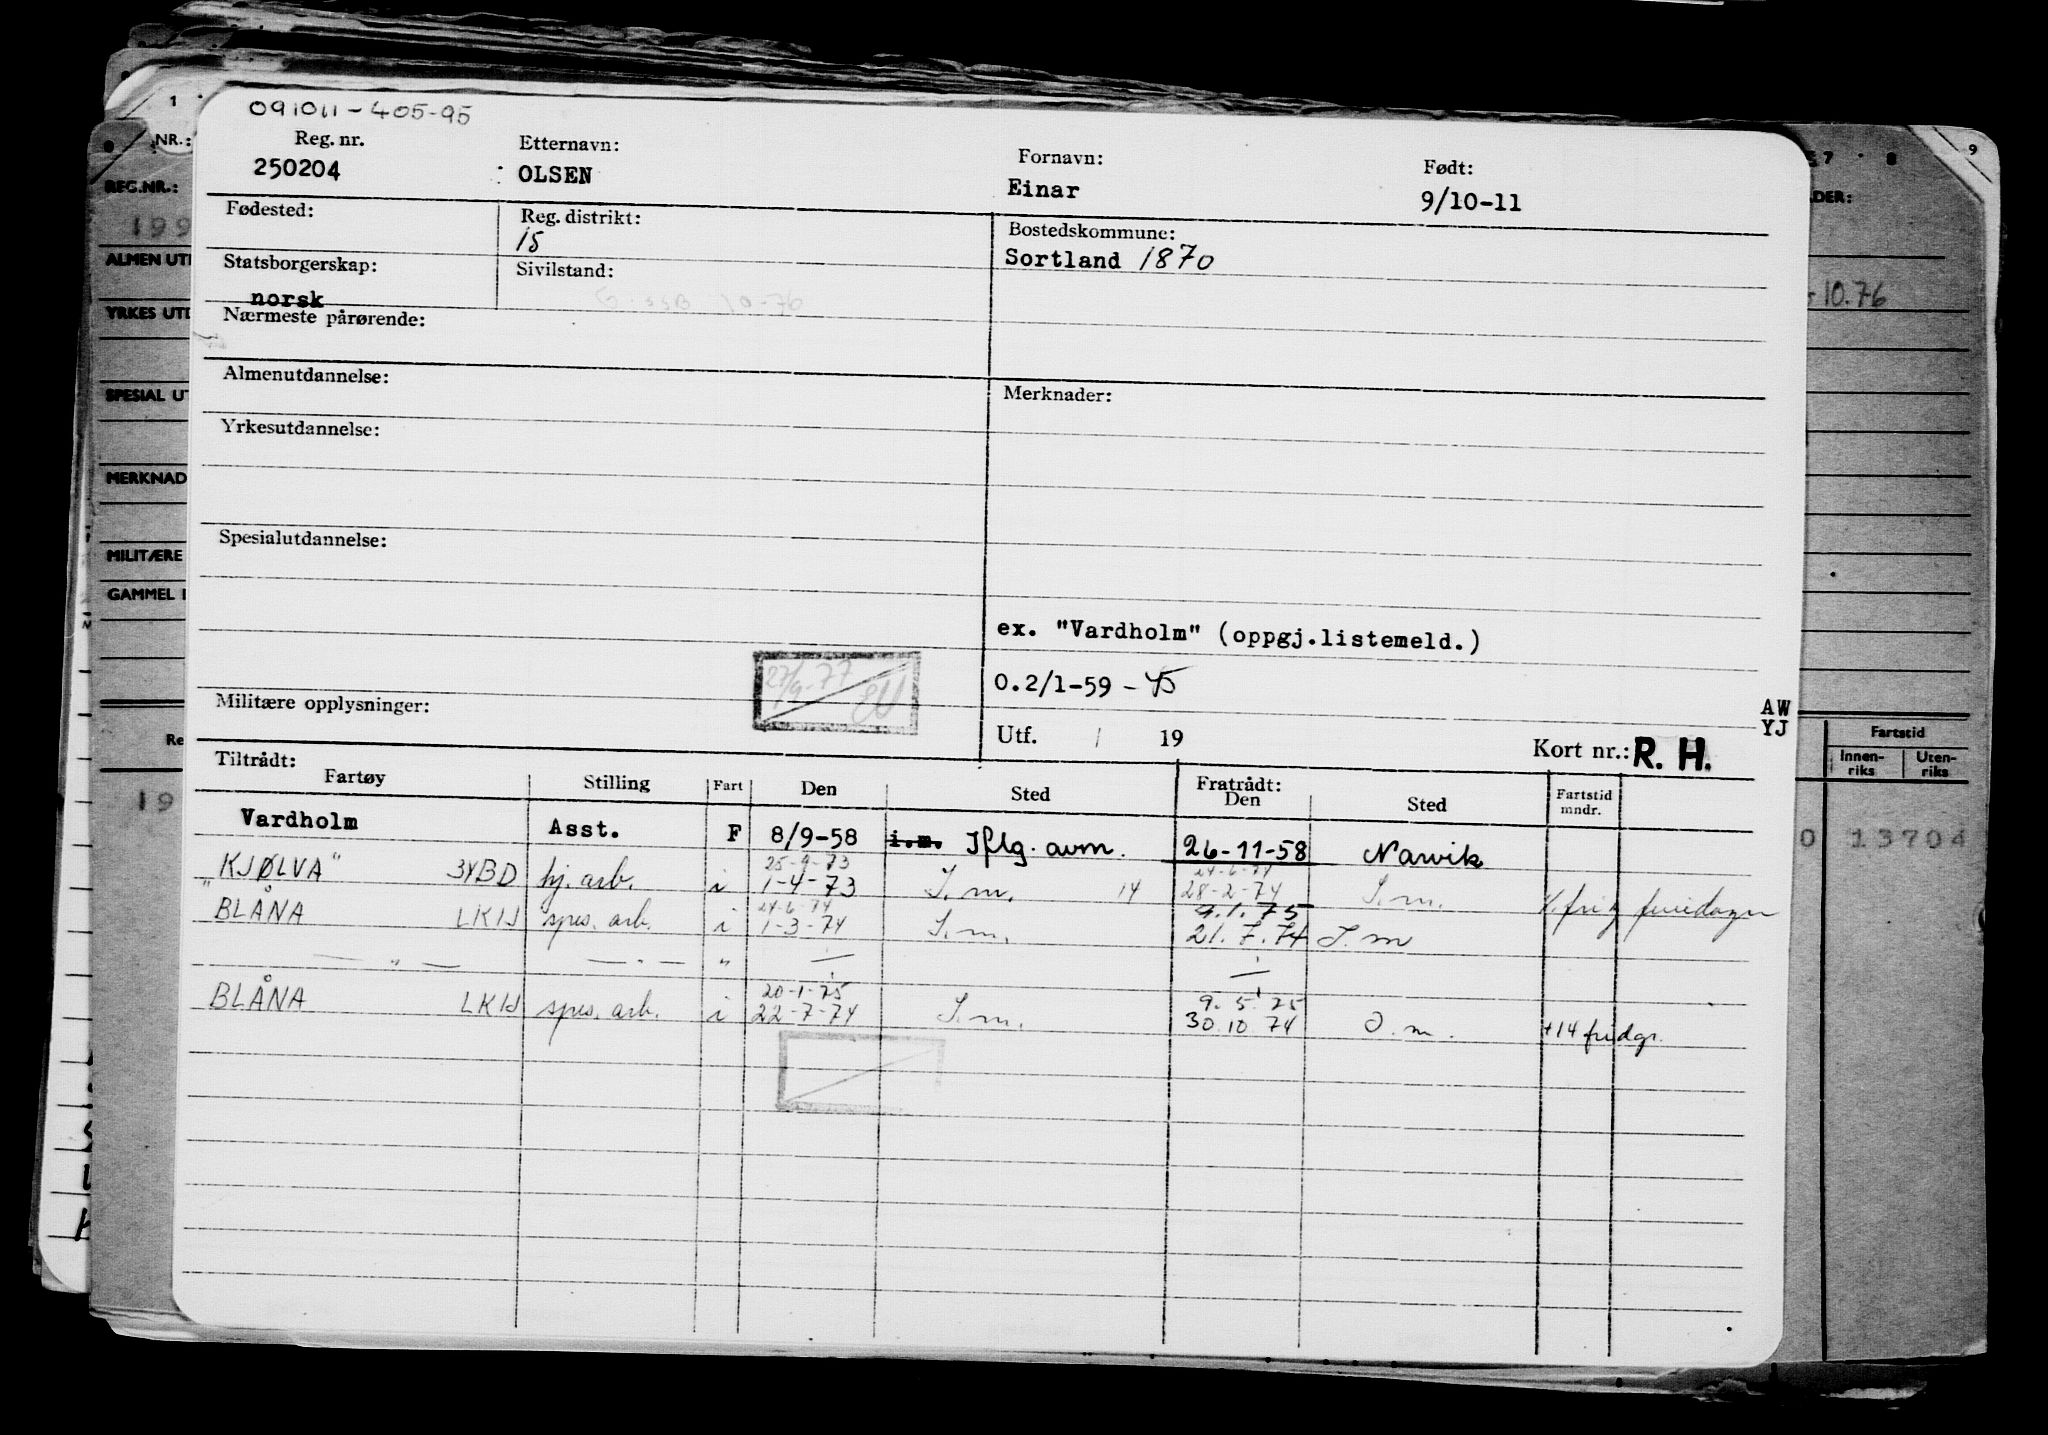 091011-405-95
Reg. nr. Etternavn: Fornavn: Født:
250204 OLSEN Einar 9/10-11
Fødested: Reg. distrikt: Bostedskommune:
15 Sortland 1870
Statsborgerskap: Sivilstand:
norsk
Nærmeste pårørende:
Almenutdannelse: Merknader:
Yrkesutdannelse:
Spesialutdannelse:
ex. "Vardholm" (oppgj.listemeld.)
27/9-77
O.2/1-59
Militære opplysninger:
AW
YJ
Utf. / 19 Kort nr.: R. H.
Tiltrådt: Fratrådt:
Fartøy Stilling Fart Den Sted Den Sted Fartstid mndr.
Vardholm Asst. F 8/9-58 i.m. Iflg. avm. 26-11-58 Narvik
25-9-73 24-6-74
"KJØLVA" 3YBD hj. arb. i 1-4-73 I.m. 14 28-2-74 I.m.
24-6-74 9.1.75
BLÅNA LKIJ spes. arb. i 1-3-74 I.m. 21.7.74 I.m
— " — — " — " — —
20-1-75 9.5.75
BLÅNA LKIJ spes. arb. i 22-7-74 I.m. 30.10.74 I.m. +14 fridgr.
1 NR.:
REG.NR.:
199
ALMEN UTD
YRKES UTD
SPESIAL UT
MERKNAD
MILITÆRE
GAMMEL I
Re
19
7 8 9
10.76
Fartstid
Innen-riks Uten-riks
0 13704